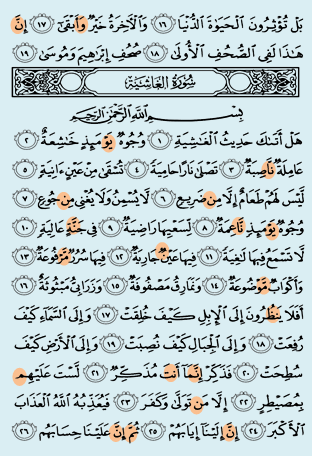 بَلْ تُؤْثِرُونَ ٱلْحَيَوٰةَ ٱلدُّنْيَا ۝١٦ وَٱلْأَخِرَةُ خَيْرٌ وَأَبْقَىٰٓ ۝١٧ إِنَّ
هَٰذَا لَفِى ٱلصُّحُفِ ٱلْأُولَىٰ ۝١٨ صُحُفِ إِبْرَٰهِيمَ وَمُوسَىٰ ۝١٩
سُورَةُ الغَاشِيَةِ
بِسْمِ ٱللَّهِ ٱلرَّحْمَٰنِ ٱلرَّحِيمِ
هَلْ أَتَىٰكَ حَدِيثُ ٱلْغَٰشِيَةِ ۝١ وُجُوهٌ يَوْمَئِذٍ خَٰشِعَةٌ ۝٢
عَامِلَةٌ نَّاصِبَةٌ ۝٣ تَصْلَىٰ نَارًا حَامِيَةً ۝٤ تُسْقَىٰ مِنْ عَيْنٍ ءَانِيَةٍ ۝٥
لَّيْسَ لَهُمْ طَعَامٌ إِلَّا مِن ضَرِيعٍ ۝٦ لَّا يُسْمِنُ وَلَا يُغْنِى مِن جُوعٍ ۝٧
وُجُوهٌ يَوْمَئِذٍ نَّاعِمَةٌ ۝٨ لِّسَعْيِهَا رَاضِيَةٌ ۝٩ فِى جَنَّةٍ عَالِيَةٍ ۝١٠
لَّا تَسْمَعُ فِيهَا لَٰغِيَةً ۝١١ فِيهَا عَيْنٌ جَارِيَةٌ ۝١٢ فِيهَا سُرُرٌ مَّرْفُوعَةٌ ۝١٣
وَأَكْوَابٌ مَّوْضُوعَةٌ ۝١٤ وَنَمَارِقُ مَصْفُوفَةٌ ۝١٥ وَزَرَابِىُّ مَبْثُوثَةٌ ۝١٦
أَفَلَا يَنظُرُونَ إِلَى ٱلْإِبِلِ كَيْفَ خُلِقَتْ ۝١٧ وَإِلَى ٱلسَّمَآءِ كَيْفَ
رُفِعَتْ ۝١٨ وَإِلَى ٱلْجِبَالِ كَيْفَ نُصِبَتْ ۝١٩ وَإِلَى ٱلْأَرْضِ كَيْفَ
سُطِحَتْ ۝٢٠ فَذَكِّرْ إِنَّمَآ أَنتَ مُذَكِّرٌ ۝٢١ لَّسْتَ عَلَيْهِم
بِمُصَيْطِرٍ ۝٢٢ إِلَّا مَن تَوَلَّىٰ وَكَفَرَ ۝٢٣ فَيُعَذِّبُهُ ٱللَّهُ ٱلْعَذَابَ
ٱلْأَكْبَرَ ۝٢٤ إِنَّ إِلَيْنَآ إِيَابَهُمْ ۝٢٥ ثُمَّ إِنَّ عَلَيْنَا حِسَابَهُم ۝٢٦